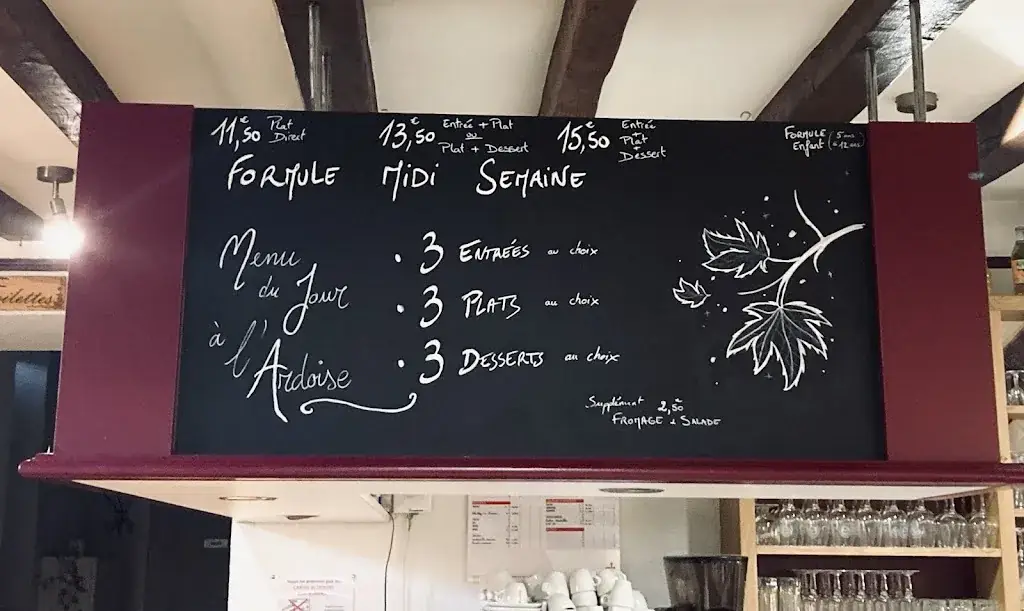 11,50€ Plat Direct
13,50€ Entrée + Plat ou Plat + Dessert
15,50€ Entrée + Plat + Dessert
Formule Enfant (5 ans à 12 ans)
FORMULE MIDI SEMAINE
Menu du Jour à l'Ardoise
• 3 ENTRÉES au choix
• 3 PLATS au choix
• 3 DESSERTS au choix
Supplément 2,50€
FROMAGE + SALADE